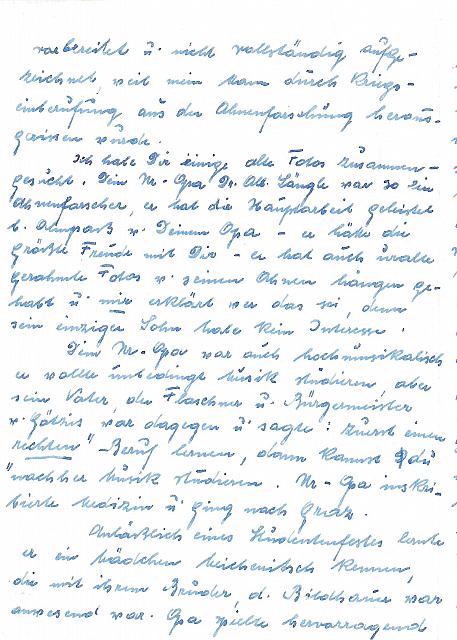 vorbereitet u. nicht vollständig aufge-
zeichnet, weil mein Mann durch Kriegs-
einberufung aus der Ahnenforschung heraus-
gerissen wurde.
Ich habe Dir einige alte Fotos zusammen-
gesucht. Dein Ur-Opa Dr. Alb. Längle war so ein
Ahnenforscher, er hat die Hauptarbeit geleistet
b. Ahnenpaß v. Deinem Opa - er hätte die
größte Freude mit Dir - er hat auch uralte
gerahmte Fotos v. seinen Ahnen hängen ge-
habt u. mir erklärt wer das sei, denn
sein einziger Sohn habe kein Interesse.
Dein Ur-Opa war auch hochmusikalisch
er wollte unbedingt Musik studieren, aber
sein Vater, der Flaschner u. Bürgermeister
v. Götzis, war dagegen u. sagte: zuerst einen
"rechten" Beruf lernen, dann kannst du
nachher Musik studieren. Ur-Opa inskri-
bierte Medizin u. ging nach Graz.
Anläßlich eines Studentenfestes lernte
er ein Mädchen kennen,
die mit ihrem Bruder, d. Bildhauer war
anwesend war. Opa spielte hervorragend